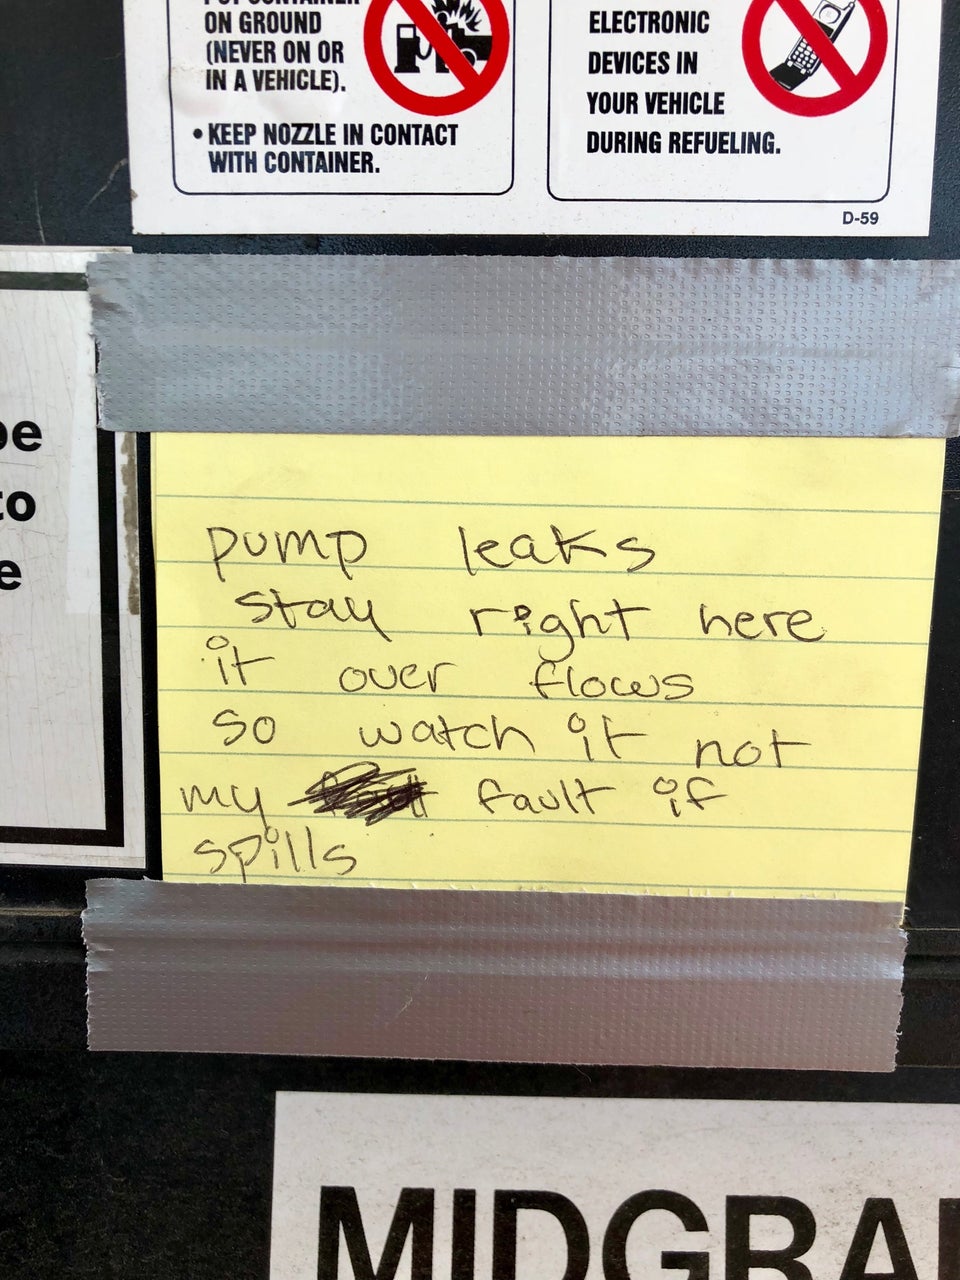 ON GROUND
(NEVER ON OR
IN A VEHICLE).
• KEEP NOZZLE IN CONTACT
WITH CONTAINER.
ELECTRONIC
DEVICES IN
YOUR VEHICLE
DURING REFUELING.
D-59
pump leaks
stay right here
it over flows
so watch it not
my fault if
spills
MIDGRA